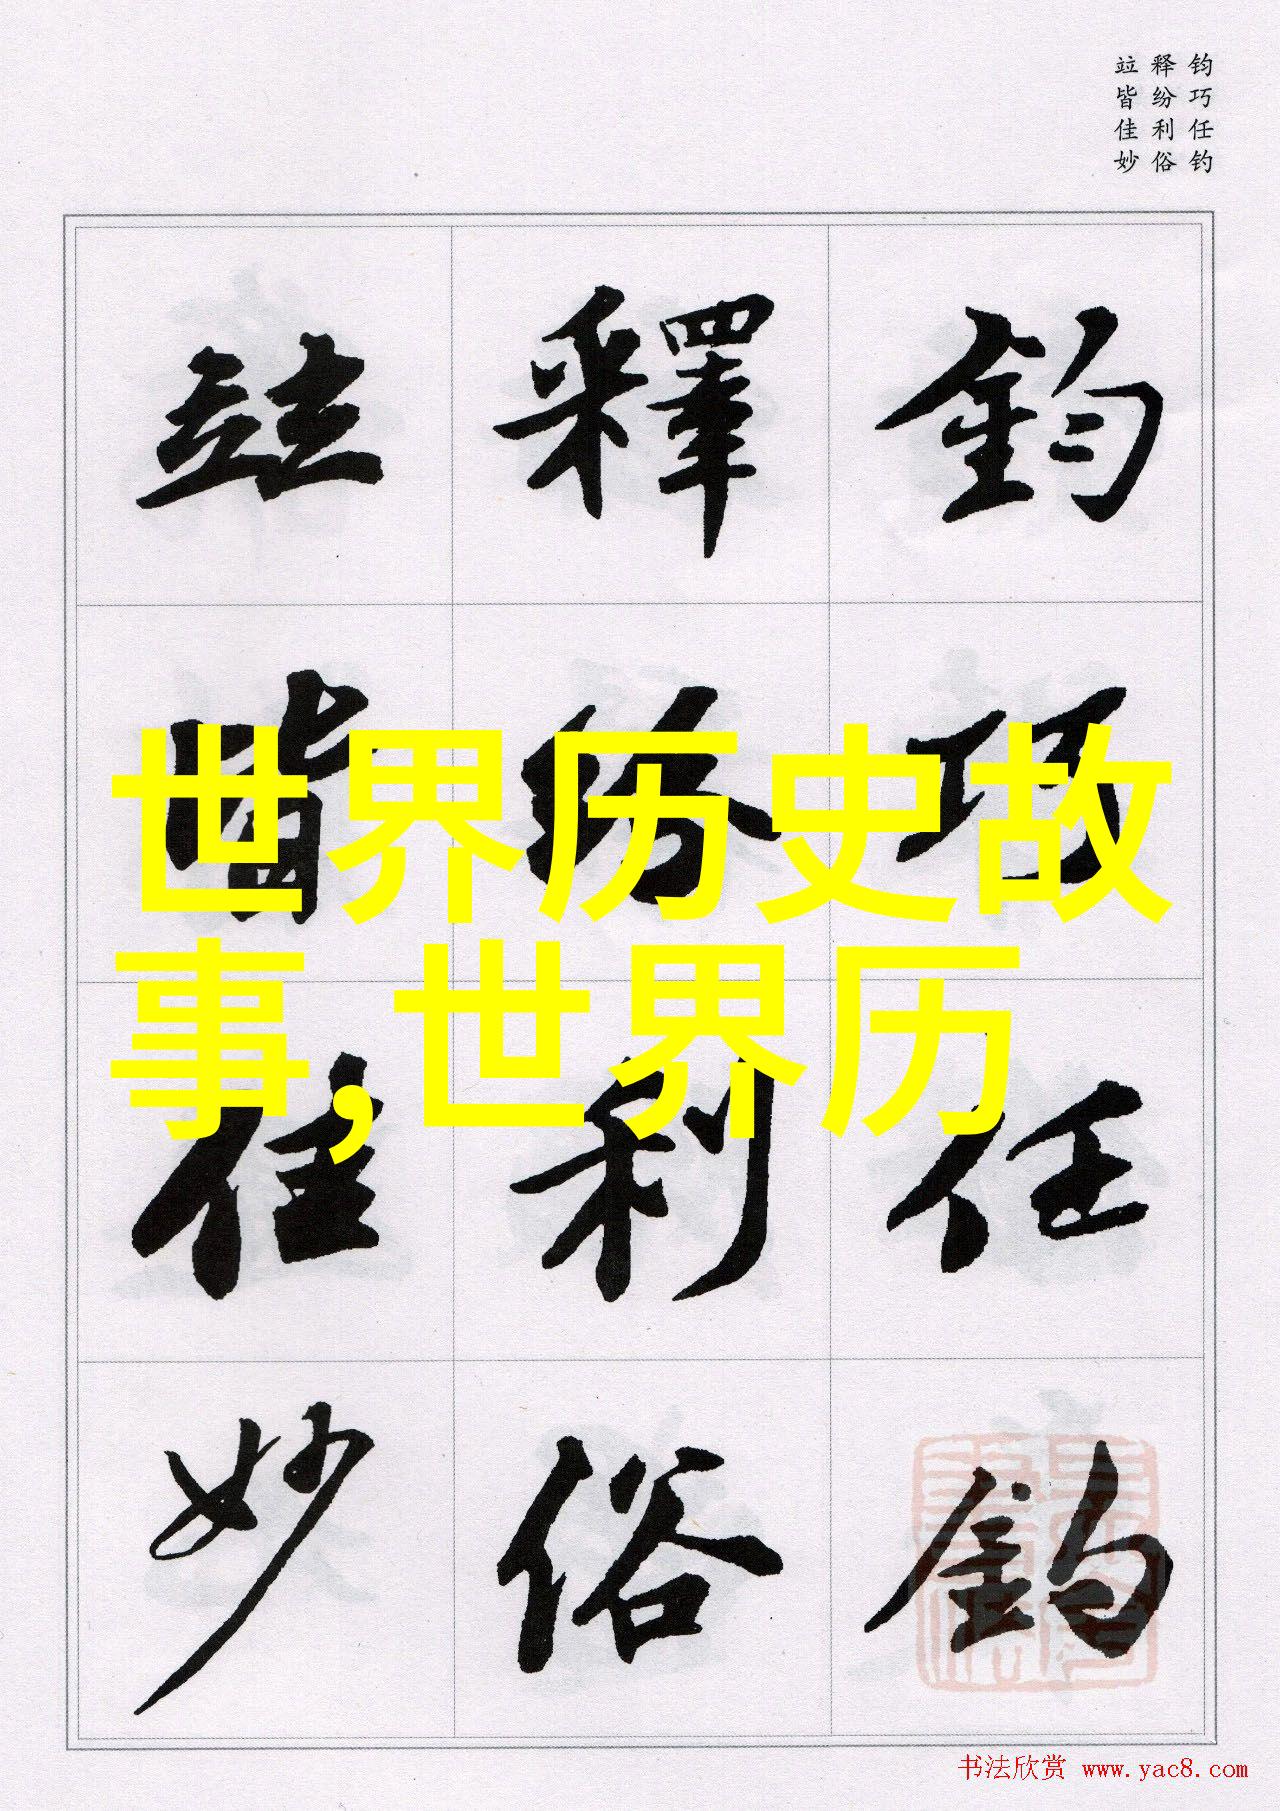 钧巧任钓
释纷利俗
竝皆佳妙
鈞巧任釣
釋紛利俗
竝皆佳妙
世界历史故
事,世界历
书法欣赏 www.yac8.com